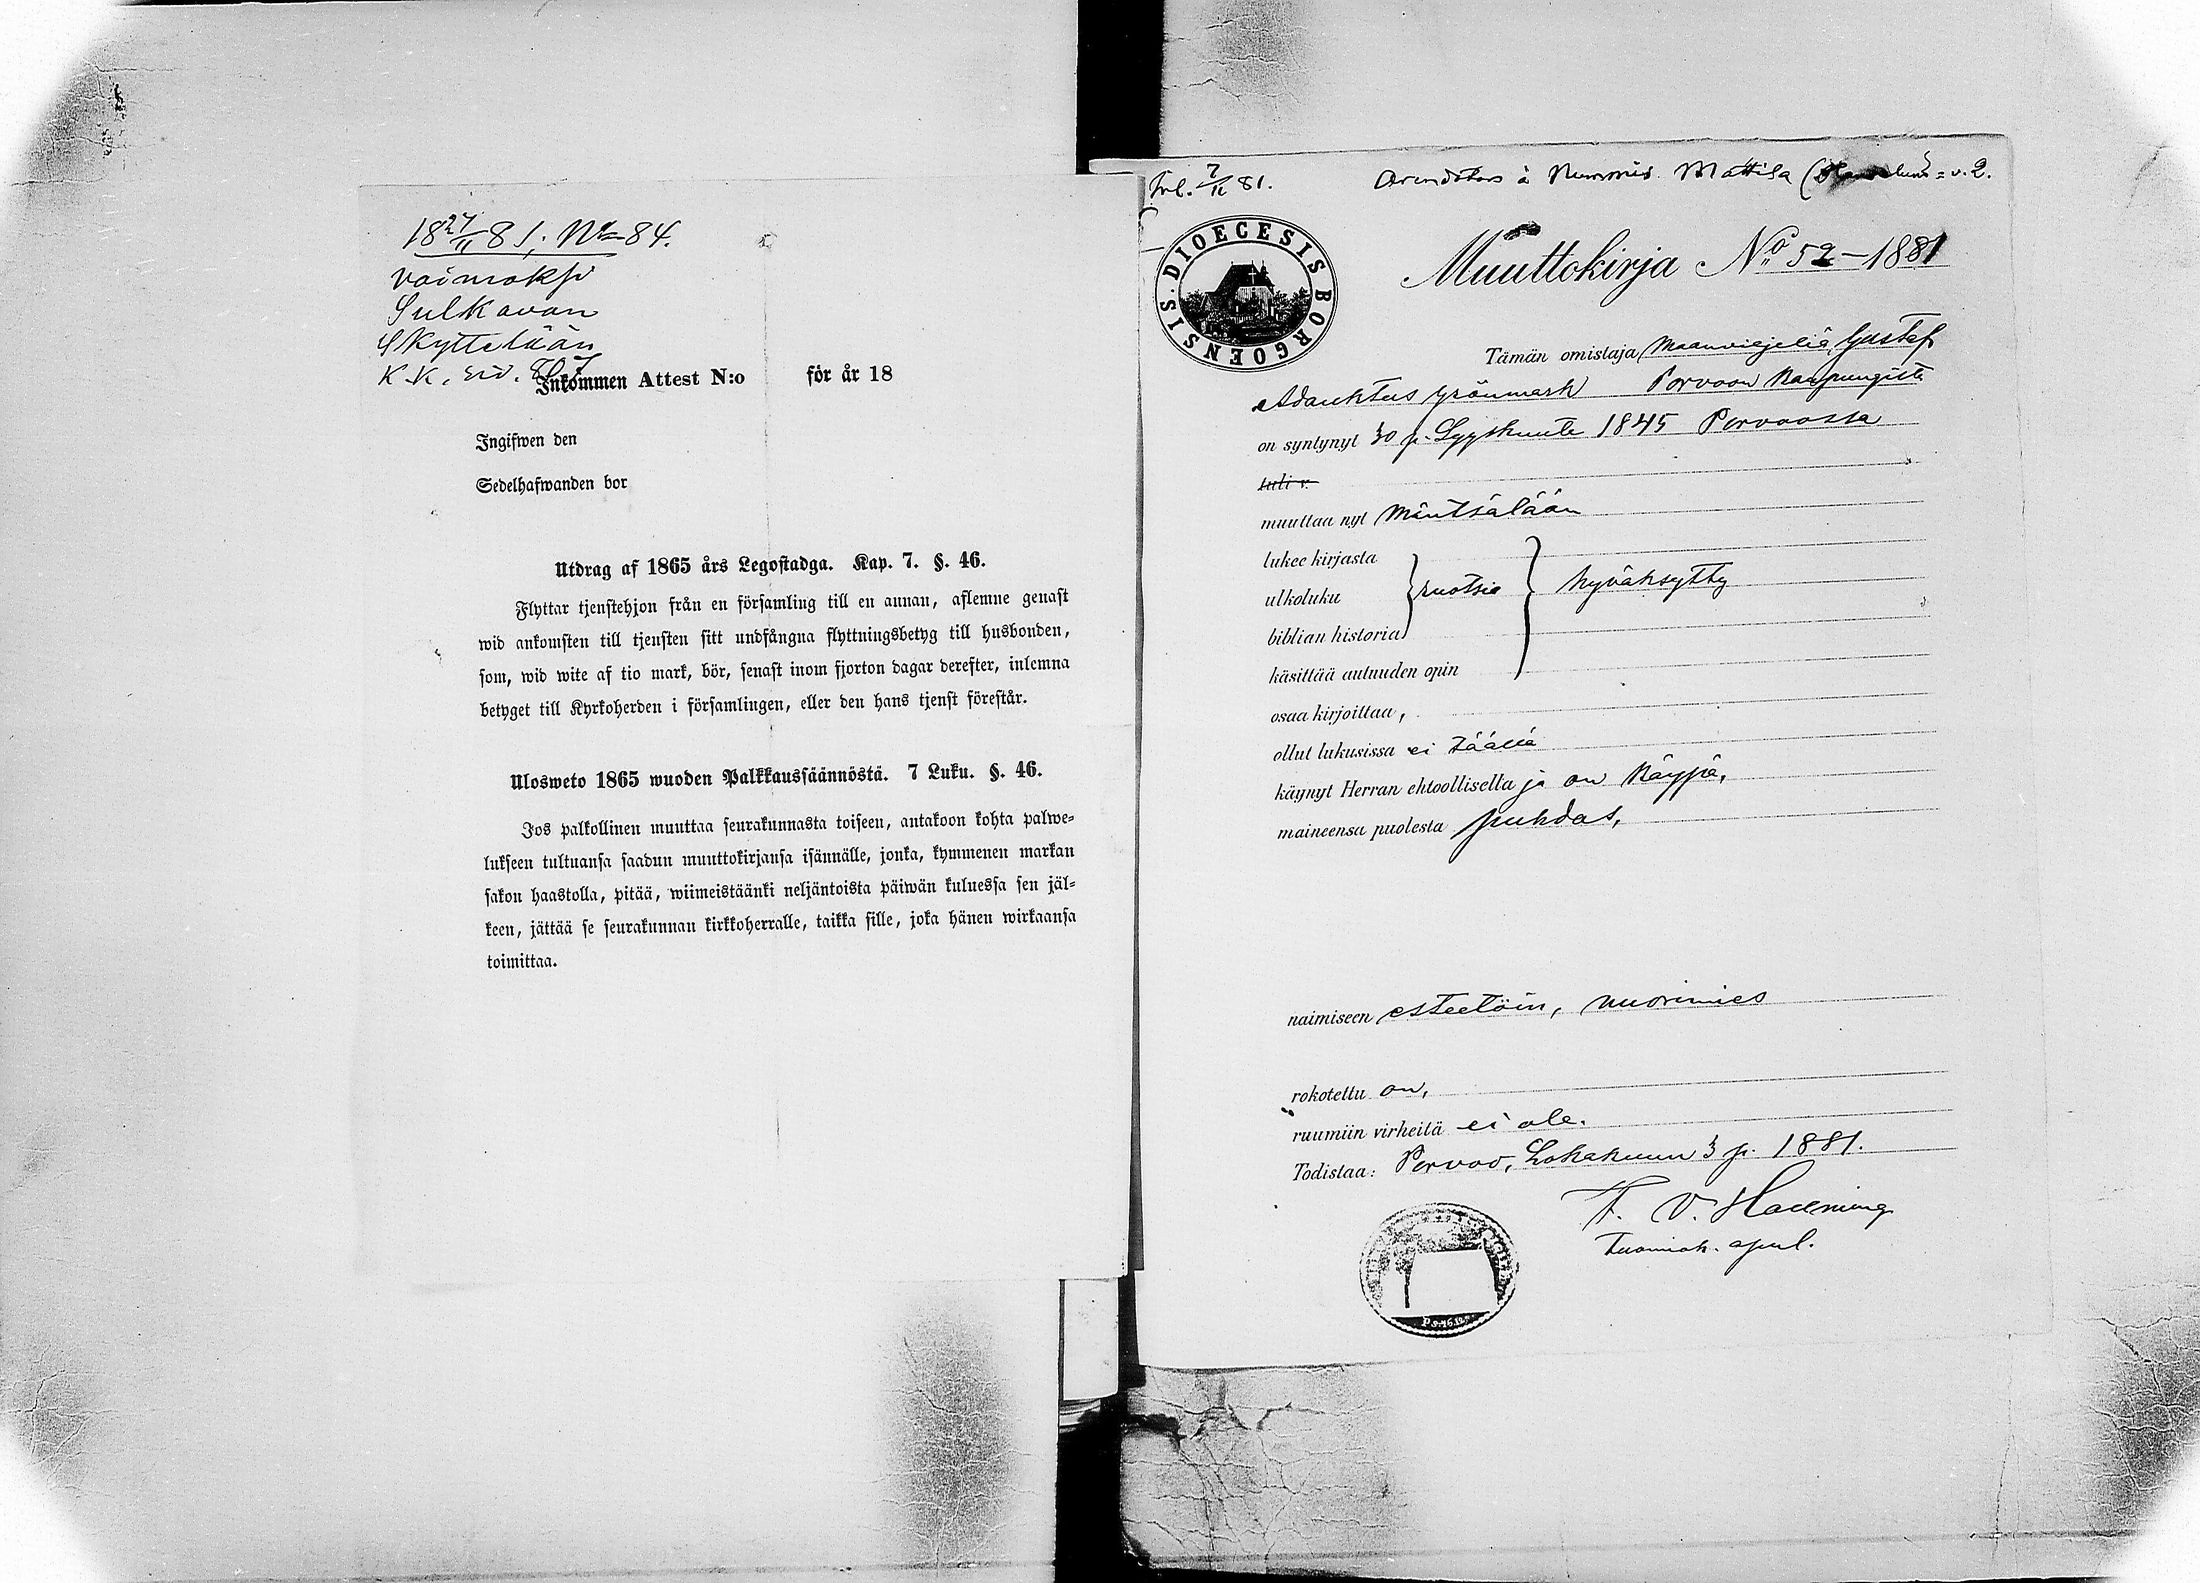 18 27/11 81. No 84.
vaimoksi
Sulkavan
Skyttelään
K.K. siv. 807
Inkommen Attest N:o för år 18
Ingifwen den
Sedelhafwanden bor
Utdrag af 1865 års Legostadga. Kap. 7. §. 46.
Flyttar tjenstehjon från en församling till en annan, aflemne genast
wid ankomsten till tjensten sitt undfångna flyttningsbetyg till husbonden,
som, wid wite af tio mark, bör, senast inom fjorton dagar derefter, inlemna
betyget till Kyrkoherden i församlingen, eller den hans tjenst förestår.
Ulosweto 1865 wuoden Palkkaussäännöstä. 7 Luku. §. 46.
Jos palkollinen muuttaa seurakunnasta toiseen, antakoon kohta palwe-
lukseen tultuansa saadun muuttokirjansa isännälle, jonka, kymmenen markan
sakon haastolla, pitää, wiimeistäänki neljäntoista päiwän kuluessa sen jäl-
keen, jättää se seurakunnan kirkkoherralle, taikka sille, joka hänen wirkaansa
toimittaa.
Inl. 7/11 81. Arendator å Nummis Mattila
DIOECESIS BORGOENSIS
Muuttokirja No 52-1881
Tämän omistaja Maanviljeliä Gustaf
Adauktus Grönmark Porvoon Kaupungista
on syntynyt 30 p. Syyskuuta 1845 Porvoossa
tuli v.
muuttaa nyt Mäntsälään
lukee kirjasta
ulkoluku ruotsia hyväksytty
biblian historia
käsittää autuuden opin
osaa kirjoittaa,
ollut lukusissa ei täällä
käynyt Herran ehtoollisella ja on käypä,
maineensa puolesta puhdas,
naimiseen esteetöin, nuorimies
rokotettu on,
ruumiin virheitä ei ole.
Todistaa: Porvoo, Lokakuun 3 p. 1881.